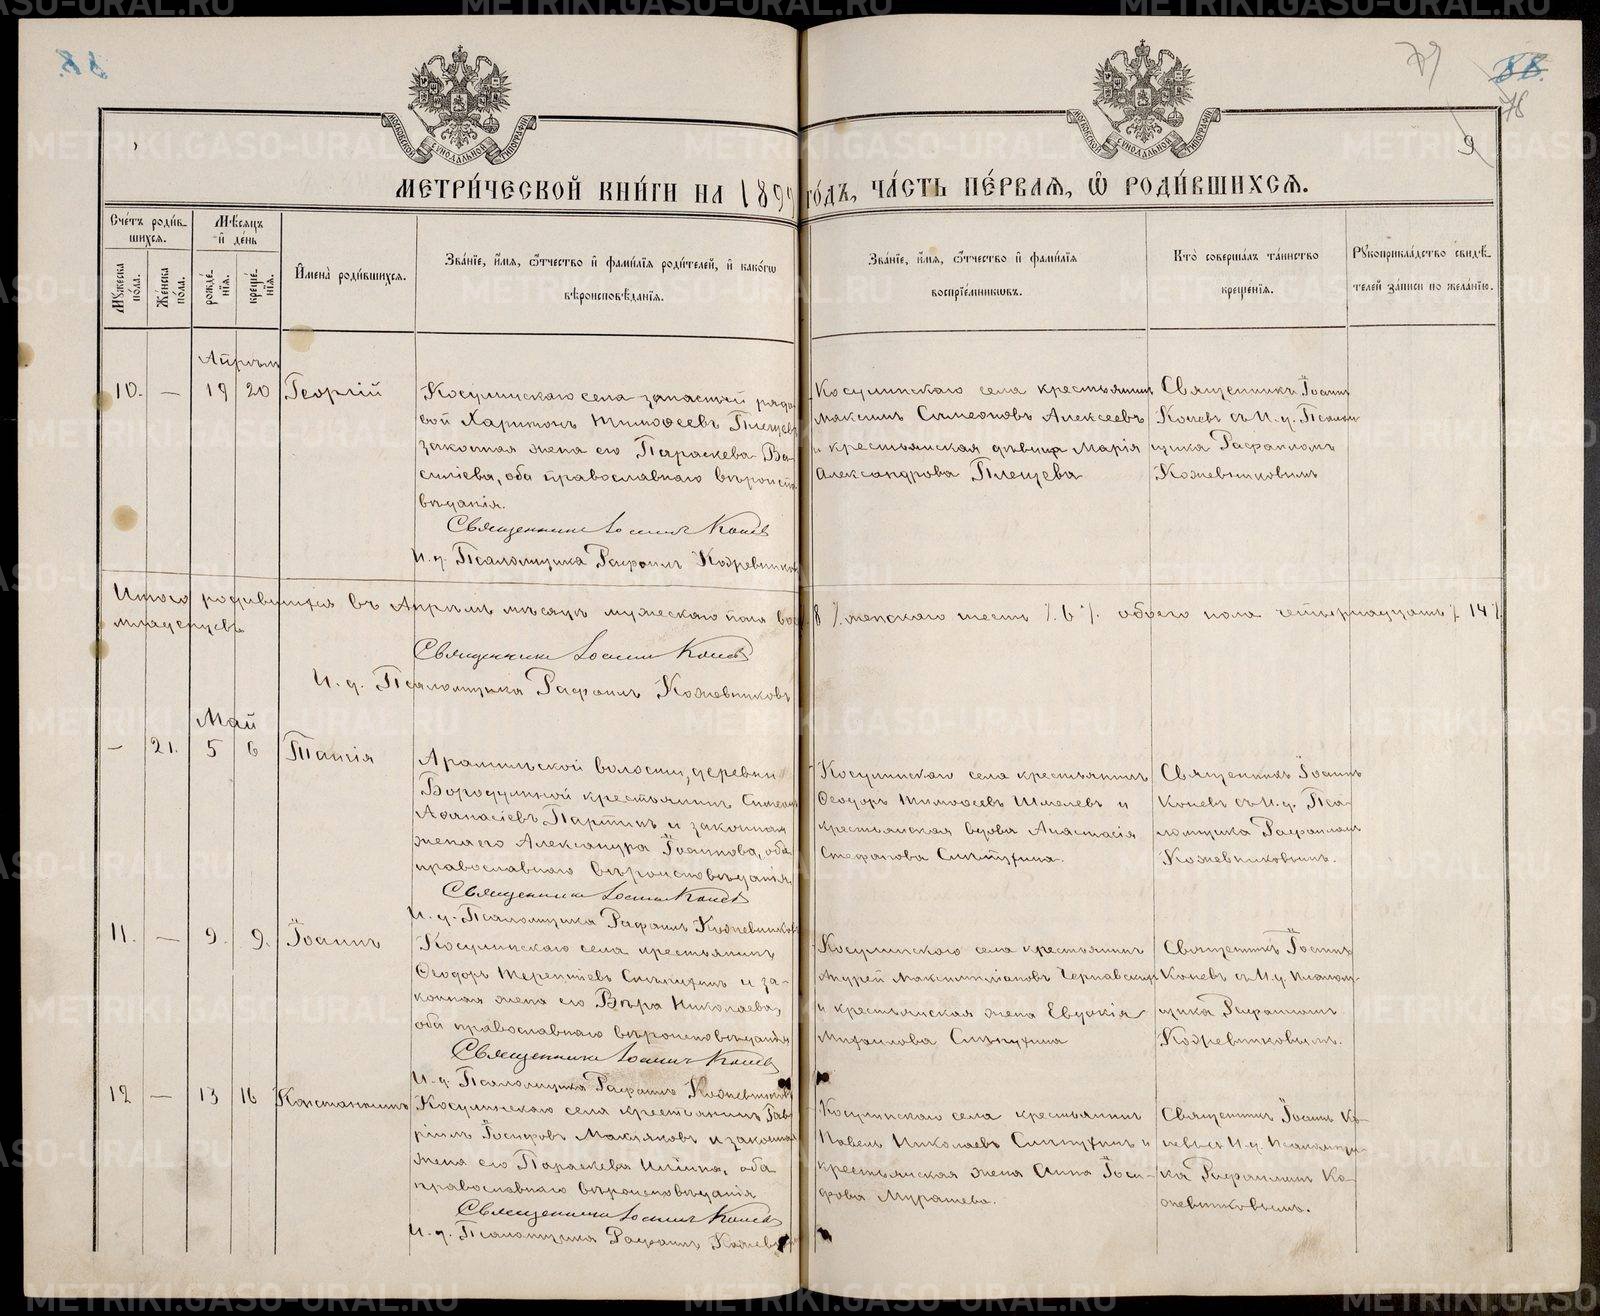 88.
79
88.
78
9
МОСКОВСКОЙ СѴНОДАЛЬНОЙ ТИПОГРАФІИ
МОСКОВСКОЙ СѴНОДАЛЬНОЙ ТИПОГРАФІИ
МЕТРИ́ЧЕСКОЙ КНИ́ГИ НА 1899 го́дъ, ЧА́СТЬ ПЕ́РВАЯ, Ѿ РОДИ́ВШИХСЯ.
Сче́тъ роди́в-
шихся.
Мѣ́сяцъ
и҆ де́нь
Мꙋ́жеска
по́ла.
Же́нска
по́ла.
рожде́-
нїя.
креще́-
нїя.
И҆мена̀ роди́вшихся.
Зва́нїе, и҆́мя, ѻ҆́тчество и҆ фами́лїя роди́телей, и҆ како́гѡ
вѣроисповѣ́данїя.
Зва́нїе, и҆́мя, ѻ҆́тчество и҆ фами́лїя
воспрїе́мникѡвъ.
Кто̀ соверша́лъ та́инство
креще́нїя.
Рꙋкоприкла́дство свидѣ́-
телей за́писи по жела́нїю.
Апрѣль
10. — 19 20 Георгій
Косулинскаго села запасный рядо-
вой Харитонъ Тимоѳеевъ Плещевъ
законная жена его Параскева Ва-
силіева, оба православнаго вѣроиспо-
вѣданія.
Священникъ Іоаннъ Коневъ
И. д. Псаломщика Рафаилъ Кожевниковъ
Косулинскаго села крестьянинъ
Максимъ Симеоновъ Алексеевъ
и крестьянская дѣвица Марія
Александрова Плещева
Священникъ Іоаннъ
Коневъ съ И. д. Псалом-
щика Рафаиломъ
Кожевниковымъ
Итого родившихся въ Апрѣлѣ мѣсяцѣ мужескаго пола вос. 8 ⁒ женскаго шесть ⁒ 6 ⁒ обоего пола четырнадцать ⁒ 14 ⁒
младенцевъ
Священникъ Іоаннъ Коневъ
И. д. Псаломщика Рафаилъ Кожевниковъ
Май
— 21. 5 6 Таисія
Арамильской волости, деревни
Бородулиной крестьянинъ Симеонъ
Аѳанасіевъ Партинъ и законная
жена его Александра Іосифова, оба
православнаго вѣроисповѣданія.
Священникъ Іоаннъ Коневъ
И. д. Псаломщика Рафаилъ Кожевниковъ
Косулинскаго села крестьянинъ
Ѳеодоръ Тимоѳеевъ Шмелевъ и
крестьянская вдова Анастасія
Стефанова Слѣпухина.
Священникъ Іоаннъ
Коневъ съ И. д. Пса-
ломщика Рафаиломъ
Кожевниковымъ.
11. — 9. 9. Іоаннъ
Косулинскаго села крестьянинъ
Ѳеодоръ Терентіевъ Слѣпухинъ и за-
конная жена его Вѣра Николаева,
оба православнаго вѣроисповѣданія
Священникъ Іоаннъ Коневъ
И. д. Псаломщика Рафаилъ Кожевниковъ
Косулинскаго села крестьянинъ
Андрей Максимиліановъ Чернавскихъ
и крестьянская жена Евдокія
Михаилова Слѣпухина
Священникъ Іоаннъ
Коневъ съ И. д. Псалом-
щика Рафаиломъ
Кожевниковымъ.
12 — 13 16 Константинъ
Косулинскаго села крестьянинъ Гав-
ріилъ Іосифовъ Макіяновъ и законная
жена его Параскева Иліина, оба
православнаго вѣроисповѣданія
Священникъ Іоаннъ Коневъ
И. д. Псаломщика Рафаилъ Кожевниковъ
Косулинскаго села крестьянинъ
Павелъ Николаевъ Слѣпухинъ и
крестьянская жена Анна Іоси-
фова Мурашева.
Священникъ Іоаннъ Ко-
невъ съ И. д. Псаломщи-
ка Рафаиломъ Ко-
жевниковымъ.
METRIKI.GASO-URAL.RU